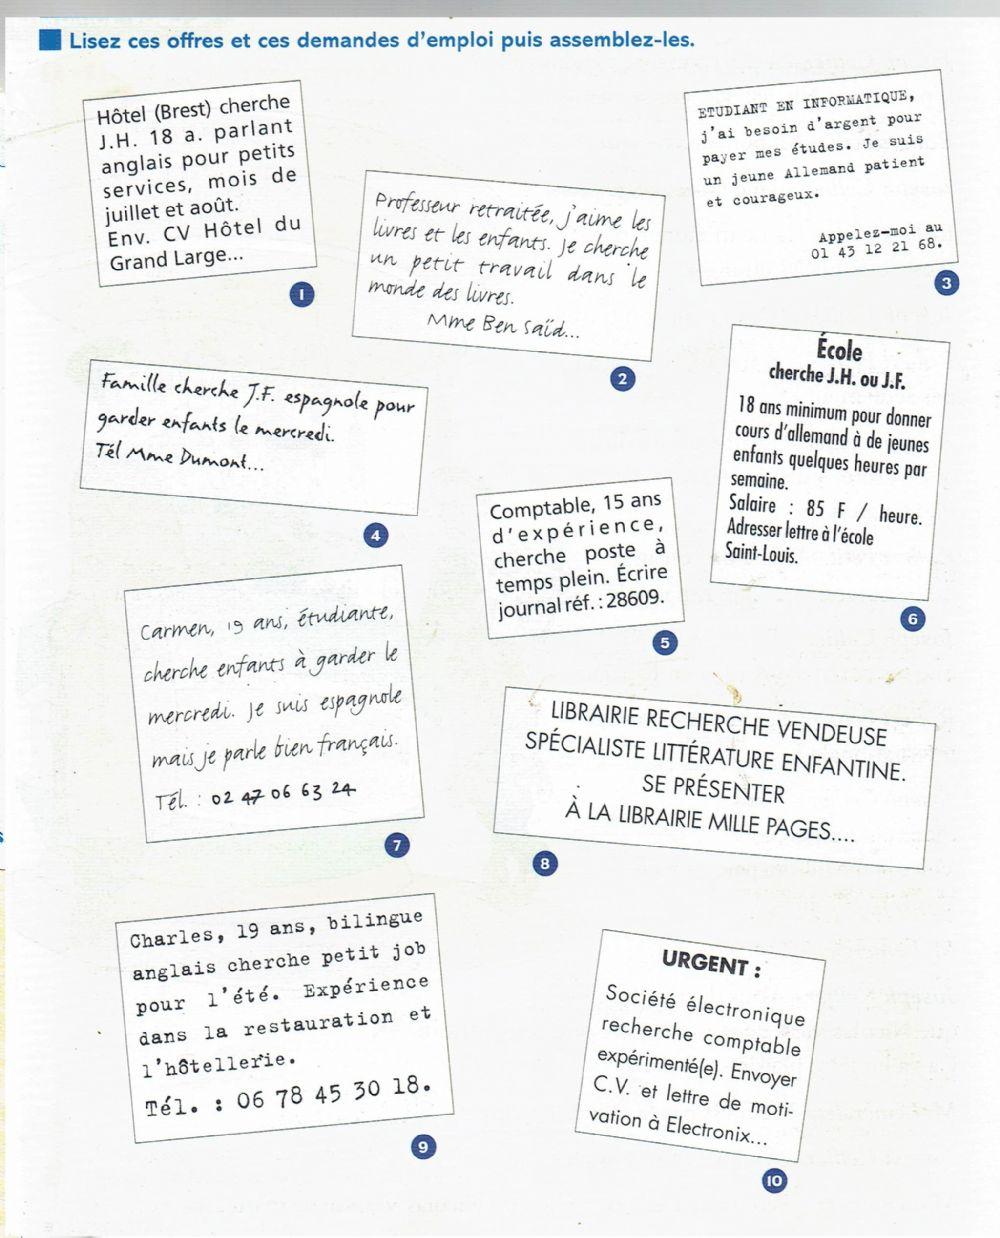 Lisez ces offres et ces demandes d'emploi puis assemblez-les.
Hôtel (Brest) cherche
J.H. 18 a. parlant
anglais pour petits
services, mois de
juillet et août.
Env. CV Hôtel du
Grand Large...
1
Professeur retraitée, j'aime les
livres et les enfants. Je cherche
un petit travail dans le
monde des livres.
Mme Ben Saïd...
2
ETUDIANT EN INFORMATIQUE,
j'ai besoin d'argent pour
payer mes études. Je suis
un jeune Allemand patient
et courageux.
Appelez-moi au
01 43 12 21 68.
3
Famille cherche J.F. espagnole pour
garder enfants le mercredi.
Tél Mme Dumont...
4
Comptable, 15 ans
d'expérience,
cherche poste à
temps plein. Écrire
journal réf. : 28609.
5
École
cherche J.H. ou J.F.
18 ans minimum pour donner
cours d'allemand à de jeunes
enfants quelques heures par
semaine.
Salaire : 85 F / heure.
Adresser lettre à l'école
Saint-Louis.
6
Carmen, 19 ans, étudiante,
cherche enfants à garder le
mercredi. Je suis espagnole
mais je parle bien français.
Tél. : 02 47 06 63 24
7
LIBRAIRIE RECHERCHE VENDEUSE
SPÉCIALISTE LITTÉRATURE ENFANTINE.
SE PRÉSENTER
À LA LIBRAIRIE MILLE PAGES....
8
Charles, 19 ans, bilingue
anglais cherche petit job
pour l'été. Expérience
dans la restauration et
l'hôtellerie.
Tél. : 06 78 45 30 18.
9
URGENT :
Société électronique
recherche comptable
expérimenté(e). Envoyer
C.V. et lettre de moti-
vation à Electronix...
10